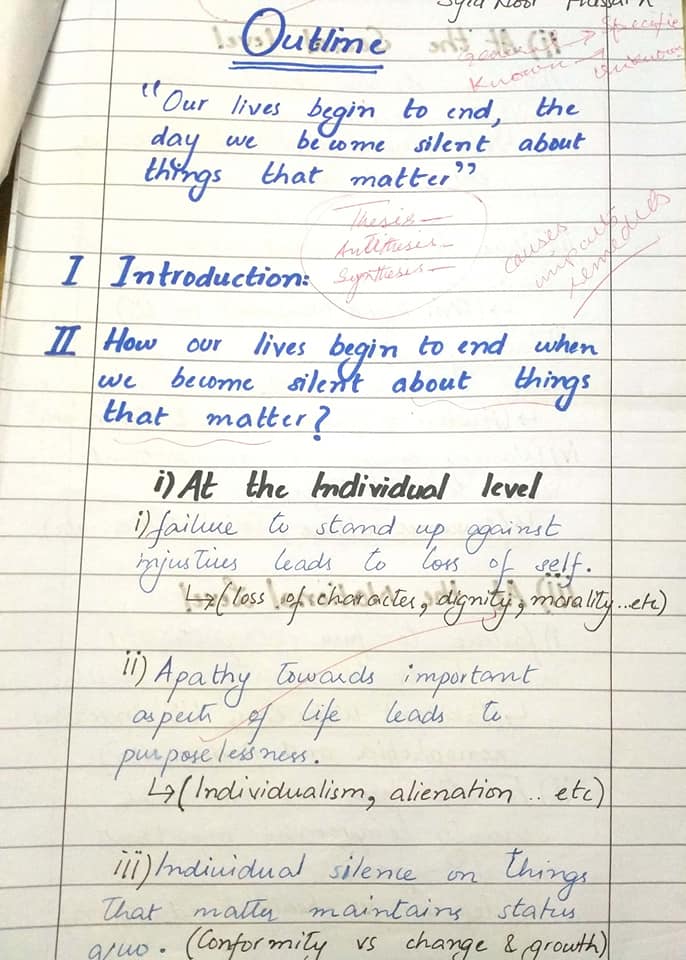 Outline
general → specific
Known → unknown
"Our lives begin to end, the
day we become silent about
things that matter"
Thesis —
Antithesis —
Synthesis —
causes
impacts
remedies
I Introduction:
II How our lives begin to end when
we become silent about things
that matter?
i) At the Individual level
i) failure to stand up against
injustices leads to loss of self.
↳ (loss of character, dignity, morality..etc)
ii) Apathy towards important
aspects of life leads to
purposelessness.
↳ (Individualism, alienation .. etc)
iii) Individual silence on things
that matter maintains status
quo. (Conformity vs change & growth)